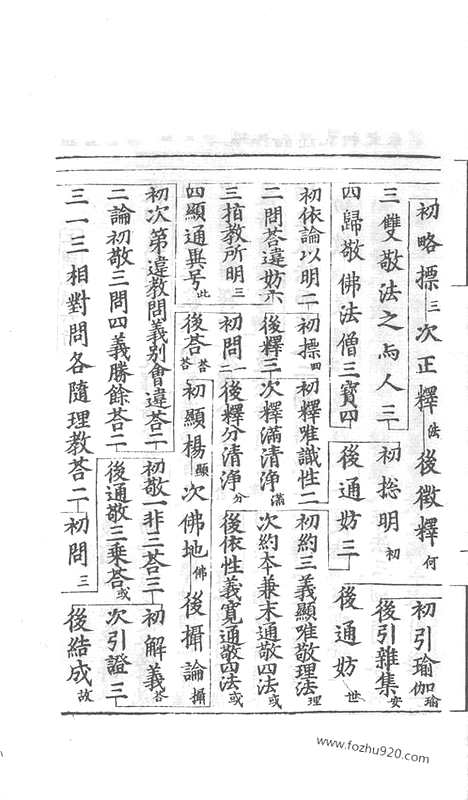 初略標三 次正釋法 後徵釋何 初引瑜伽瑜
三雙敬法之与人三 初総明初 後引雜集安
四歸敬佛法僧三寶四 後通妨三 後通妨世
初依論以明二 初標四 初釋唯識性二 初約三義顯唯敬理法理
二問荅違妨六 後釋三 次釋滿清淨滿 次約本兼末通敬四法或
三指教所明三 初問一 後釋分清淨分 後依性義寬通敬四法或
四顯通異号此 後荅荅 初顯楊顯 次佛地佛 後攝論攝
初次第違教問義别會違荅二 初敬一非三荅三 初解義荅
二論初敬三問四義勝餘荅二 後通敬三乘荅或 次引證三
三一三相對問各隨理教荅二 初問三 後結成故
www.fozhu920.com